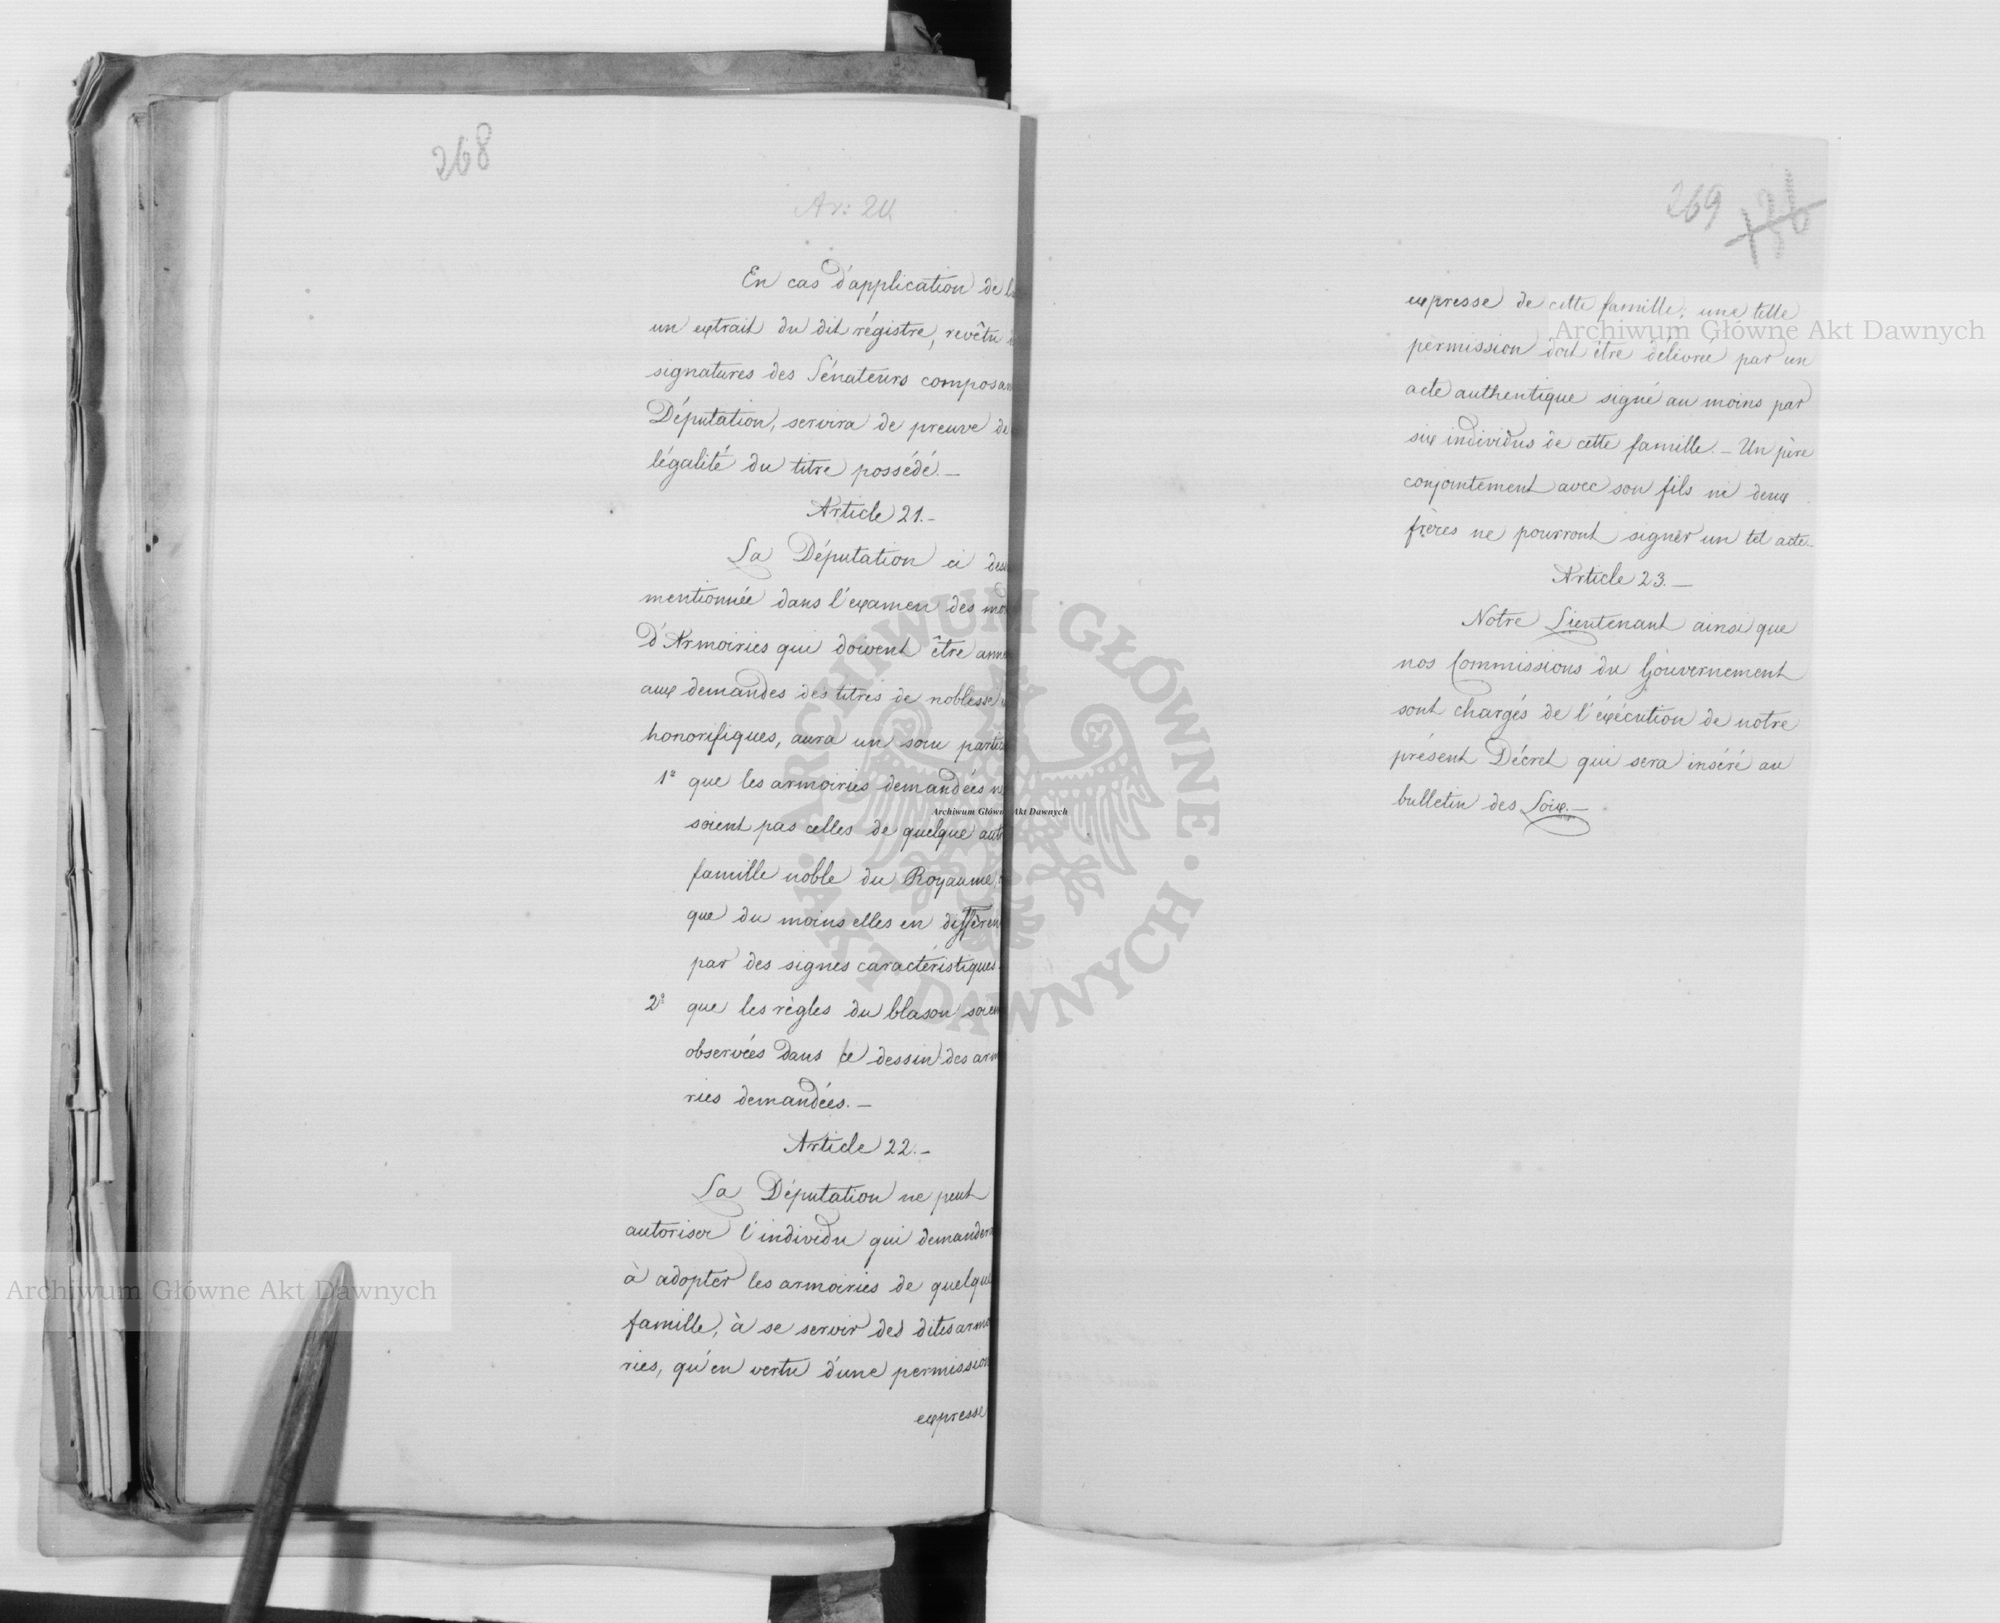 268
Ar: 20
En cas d'application de
un extrait du dit régistre, revêtu
signatures des Sénateurs composan
Députation, servira de preuve de
légalité du titre possédé. —
Article 21. —
La Députation ci des
mentionnée dans l'examen des mo
d'Armoiries qui doivent être ann
aux demandes des titres de noblesse
honorifiques, aura un soin partic
1º que les armoiries demandées ne
soient pas celles de quelque aut
famille noble du Royaume,
que du moins elles en diffèren
par des signes caractéristiques.
2º que les règles du blason soien
observées dans le dessin des arm
ries demandées. —
Article 22. —
La Députation ne peut
autoriser l'individu qui demandera
à adopter les armoiries de quelque
famille, à se servir des dites armo
ries, qu'en vertu d'une permission
expresse
269 136
expresse de cette famille; une telle
permission doit être délivrée par un
acte authentique signé au moins par
six individus de cette famille. — Un père
conjointement avec son fils ni deux
frères ne pourront signer un tel acte. —
Article 23. —
Notre Lieutenant ainsi que
nos Commissions du Gouvernement
sont chargés de l'exécution de notre
présent Décret qui sera inséré au
bulletin des Loix. —
Archiwum Główne Akt Dawnych
Archiwum Główne Akt Dawnych
Archiwum Główne Akt Dawnych
ARCHIWUM GŁÓWNE · AKT DAWNYCH ·